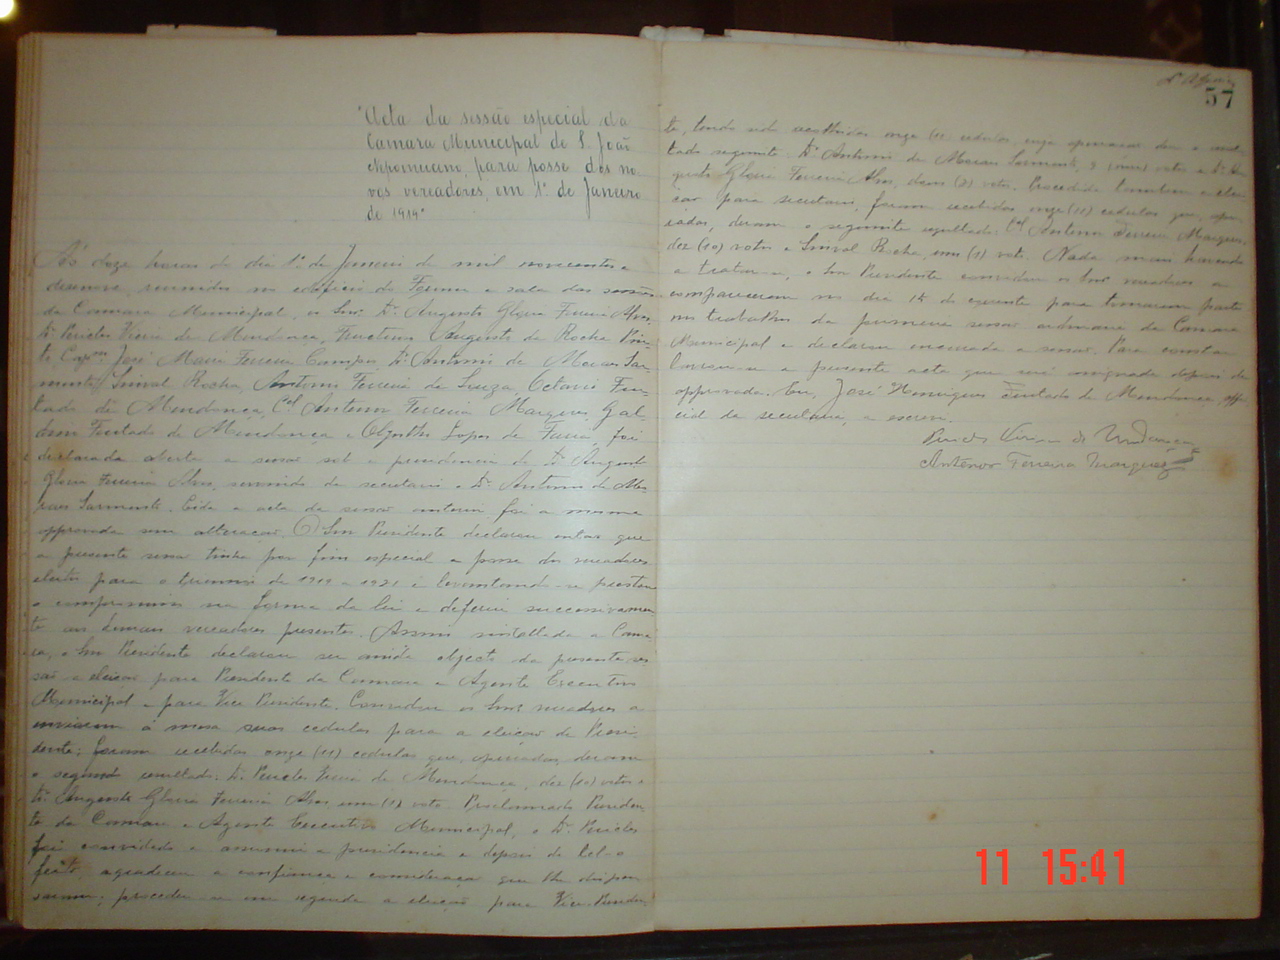 "Acta da sessão especial da
Camara Municipal de S. João
Nepomuceno, para posse dos no-
vos vereadores, em 1º de Janeiro
de 1919"
Ás doze horas do dia 1º de Janeiro de mil novecentos e
dezenove, reunidos no edificio do Forum e sala das sessões
da Camara Municipal, os Snrs. Dr. Augusto Gloria Ferreira Alves,
Dr. Pericles Vieira de Mendonça, Augusto da Rocha Pin-
to, Capm. José Maria Ferreira Campos, Dr. Antonio de Moraes Sar-
mento, Sinval Rocha, Antonio Ferreira de Souza, Octavio Fur-
tado de Mendonça, Cel. Antenor Ferreira Marques, Gal-
dino Furtado de Mendonça e Lopes de Faria, foi
declarada aberta a sessão sob a presidencia do Dr. Augusto
Gloria Ferreira Alves, servindo de secretario o Dr. Antonio de Mo-
raes Sarmento. Lida a acta da sessão anterior foi a mesma
approvada sem alteração. O Snr. Presidente declarou então que
a presente sessão tinha por fim especial a posse dos vereadores
eleitos para o triennio de 1919 a 1921 e levantando-se prestou
o compromisso na forma da lei e deferiu successivamen-
te aos demais vereadores presentes. Assim installada a Cama-
ra, o Snr. Presidente declarou ser ainda objecto da presente ses-
são a eleição para Presidente da Camara e Agente Executivo
Municipal e para Vice Presidente. Convidou os Snrs. vereadores a
enviarem á mesa suas cedulas para a eleição de Presi-
dente; foram recebidas onze (11) cedulas que, apuradas, deram
o seguinte resultado: Dr. Pericles Vieira de Mendonça, dez (10) votos e
Dr. Augusto Gloria Ferreira Alves um (1) voto. Proclamado Presiden-
te da Camara e Agente Executivo Municipal, o Dr. Pericles
foi convidado a assumir a presidencia e depois de tel-o
feito, agradeceu a confiança e consideração que lhe dispen-
savam; procedeu-se em seguida a eleição para Vice-Presiden-
57
te, tendo sido recebidas onze (11) cedulas, cuja apuração deu o resul-
tado seguinte: Dr. Antonio de Moraes Sarmento, 9 (nove) votos e Dr. Au-
gusto Gloria Ferreira Alves, dous (2) votos. Procedida tambem a elei-
ção para secretario, foram recebidas onze (11) cedulas que, apu-
radas, deram o seguinte resultado: Cel. Antenor Ferreira Marques,
dez (10) votos e Sinval Rocha, um (1) voto. Nada mais havendo
a tratar-se, o Snr. Presidente convidou os Snrs. vereadores a
comparecerem no dia 15 do corrente para tomarem parte
nos trabalhos da primeira sessão ordinaria da Camara
Municipal e declarou encerrada a sessão. Para constar
lavrou-se a presente acta que será assignada depois de
approvada. Eu, José Henriques Furtado de Mendonça, offi-
cial da secretaria, a escrevi.
Pericles Vieira de Mendonça
Antenor Ferreira Marques
11 15:41